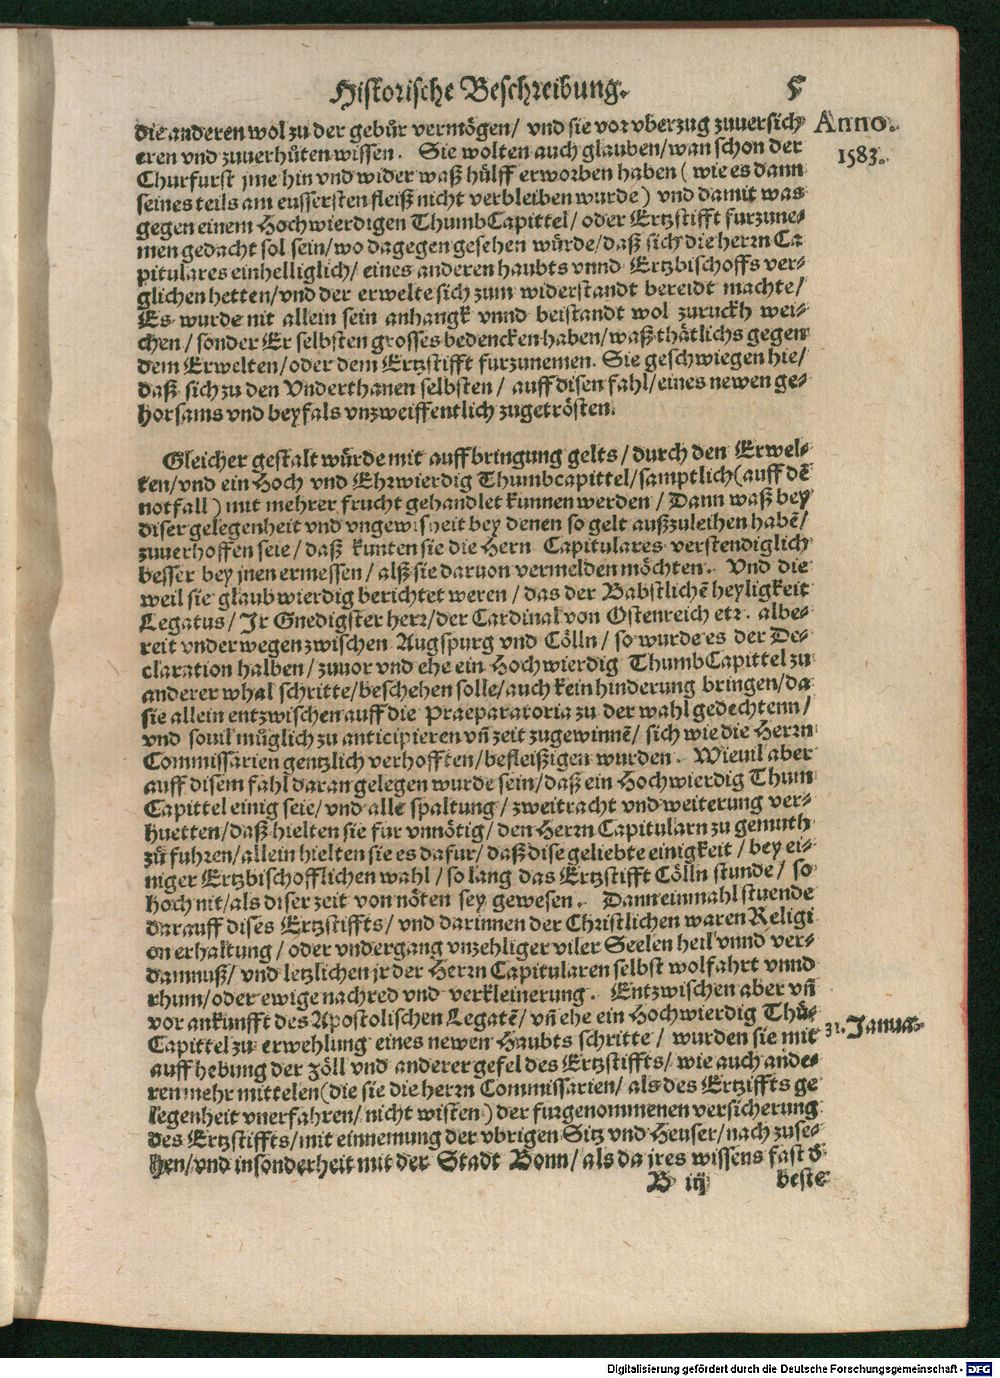 Historische Beschreibung. 5
die anderen wol zu der gebůr vermögen/ vnd sie vor vberzug zuuersich Anno.
eren vnd zuuerhůten wissen. Sie wolten auch glauben/wan schon der 1583.
Churfurst jme hin vnd wider waß hůlff erworben haben (wie es dann
seines teils am eussersten fleiß nicht verbleiben wurde) vnd damit was
gegen einem Hochwierdigen ThumbCapittel/ oder Ertzstifft furzune-
men gedacht sol sein/wo dagegen gesehen wůrde/daß sich die herrn Ca
pitulares einhelliglich/ eines anderen haubts vnnd Ertzbischoffs ver-
glichen hetten/vnd der erwelte sich zum widerstandt bereidt machte/
Es wurde nit allein sein anhangk vnnd beistandt wol zuruckh wei-
chen/ sonder Er selbsten grosses bedencken haben/waß thätlichs gegen
dem Erwelten/oder dem Ertzstifft furzunemen. Sie geschwiegen hie/
daß sich zu den Vnderthanen selbsten/ auff disen fahl/eines newen ge-
horsams vnd beyfals vnzweiffentlich zugetrösten.
Gleicher gestalt wůrde mit auffbringung gelts/durch den Erwel-
ten/vnd ein Hoch vnd Ehrwierdig Thumbcapittel/samptlich(auff dē
notfall) mit mehrer frucht gehandlet kunnen werden/ Dann waß bey
diser gelegenheit vnd vngewisheit bey denen so gelt außzuleihen habē/
zuuerhoffen seie/ daß kunten sie die Hern Capitulares verstendiglich
besser bey jnen ermessen/ alß sie daruon vermelden möchten. Vnd die
weil sie glaubwierdig berichtet weren/ das der Babstlichē heyligkeit
Legatus/ Jr Gnedigster herr/der Cardinal von Ostenreich etz. albe-
reit vnderwegen zwischen Augspurg vnd Cölln/ so wurde es der De-
claration halben/ zuuor vnd ehe ein Hochwierdig ThumbCapittel zu
anderer whal schritte/beschehen solle/auch kein hinderung bringen/da
sie allein entzwischen auff die Praeparatoria zu der wahl gedechtenn/
vnd souil můglich zu anticipieren vñ zeit zugewinnē/ sich wie die Herrn
Commissarien gentzlich verhofften/befleißigen wurden. Wieuil aber
auff disem fahl daran gelegen wurde sein/daß ein Hochwierdig Thum
Capittel einig seie/ vnd alle spaltung/ zweitracht vnd weiterung ver-
huetten/daß hielten sie fur vnnötig/ den Herrn Capitularn zu gemuth
zů fuhren/allein hielten sie es dafur/ daß dise geliebte einigkeit/ bey ei-
niger Ertzbischofflichen wahl/ so lang das Ertzstifft Cölln stunde/ so
hoch nit/als diser zeit von nöten sey gewesen. Dann einmahl stuende
darauff dises Ertzstiffts/ vnd darinnen der Christlichen waren Religi
on erhaltung/ oder vndergang vnzehliger viler Seelen heil vnnd ver-
damnuß/ vnd letzlichen jr der Herrn Capitularen selbst wolfahrt vnnd
rhum/oder ewige nachred vnd verkleinerung. Entzwischen aber vñ
vor ankunfft des Apostolischen Legatē/ vñ ehe ein Hochwierdig Thū-
Capittel zu erwehlung eines newen Haubts schritte/ wurden sie mit 31. Janua-
auffhebung der zöll vnd anderer gefel des Ertzstiffts/ wie auch ande-
ren mehr mittelen(die sie die herrn Commissarien/ als des Ertziffts ge
legenheit vnerfahren/ nicht wisten) der furgenommenen versicherung
des Ertzstiffts/mit einnemung der vbrigen Sitz vnd Heuser/nach zuse-
hen/vnd insonderheit mit der Stadt Bonn/als da jres wissens fast d
B iij beste
Digitalisierung gefördert durch die Deutsche Forschungsgemeinschaft - DFG